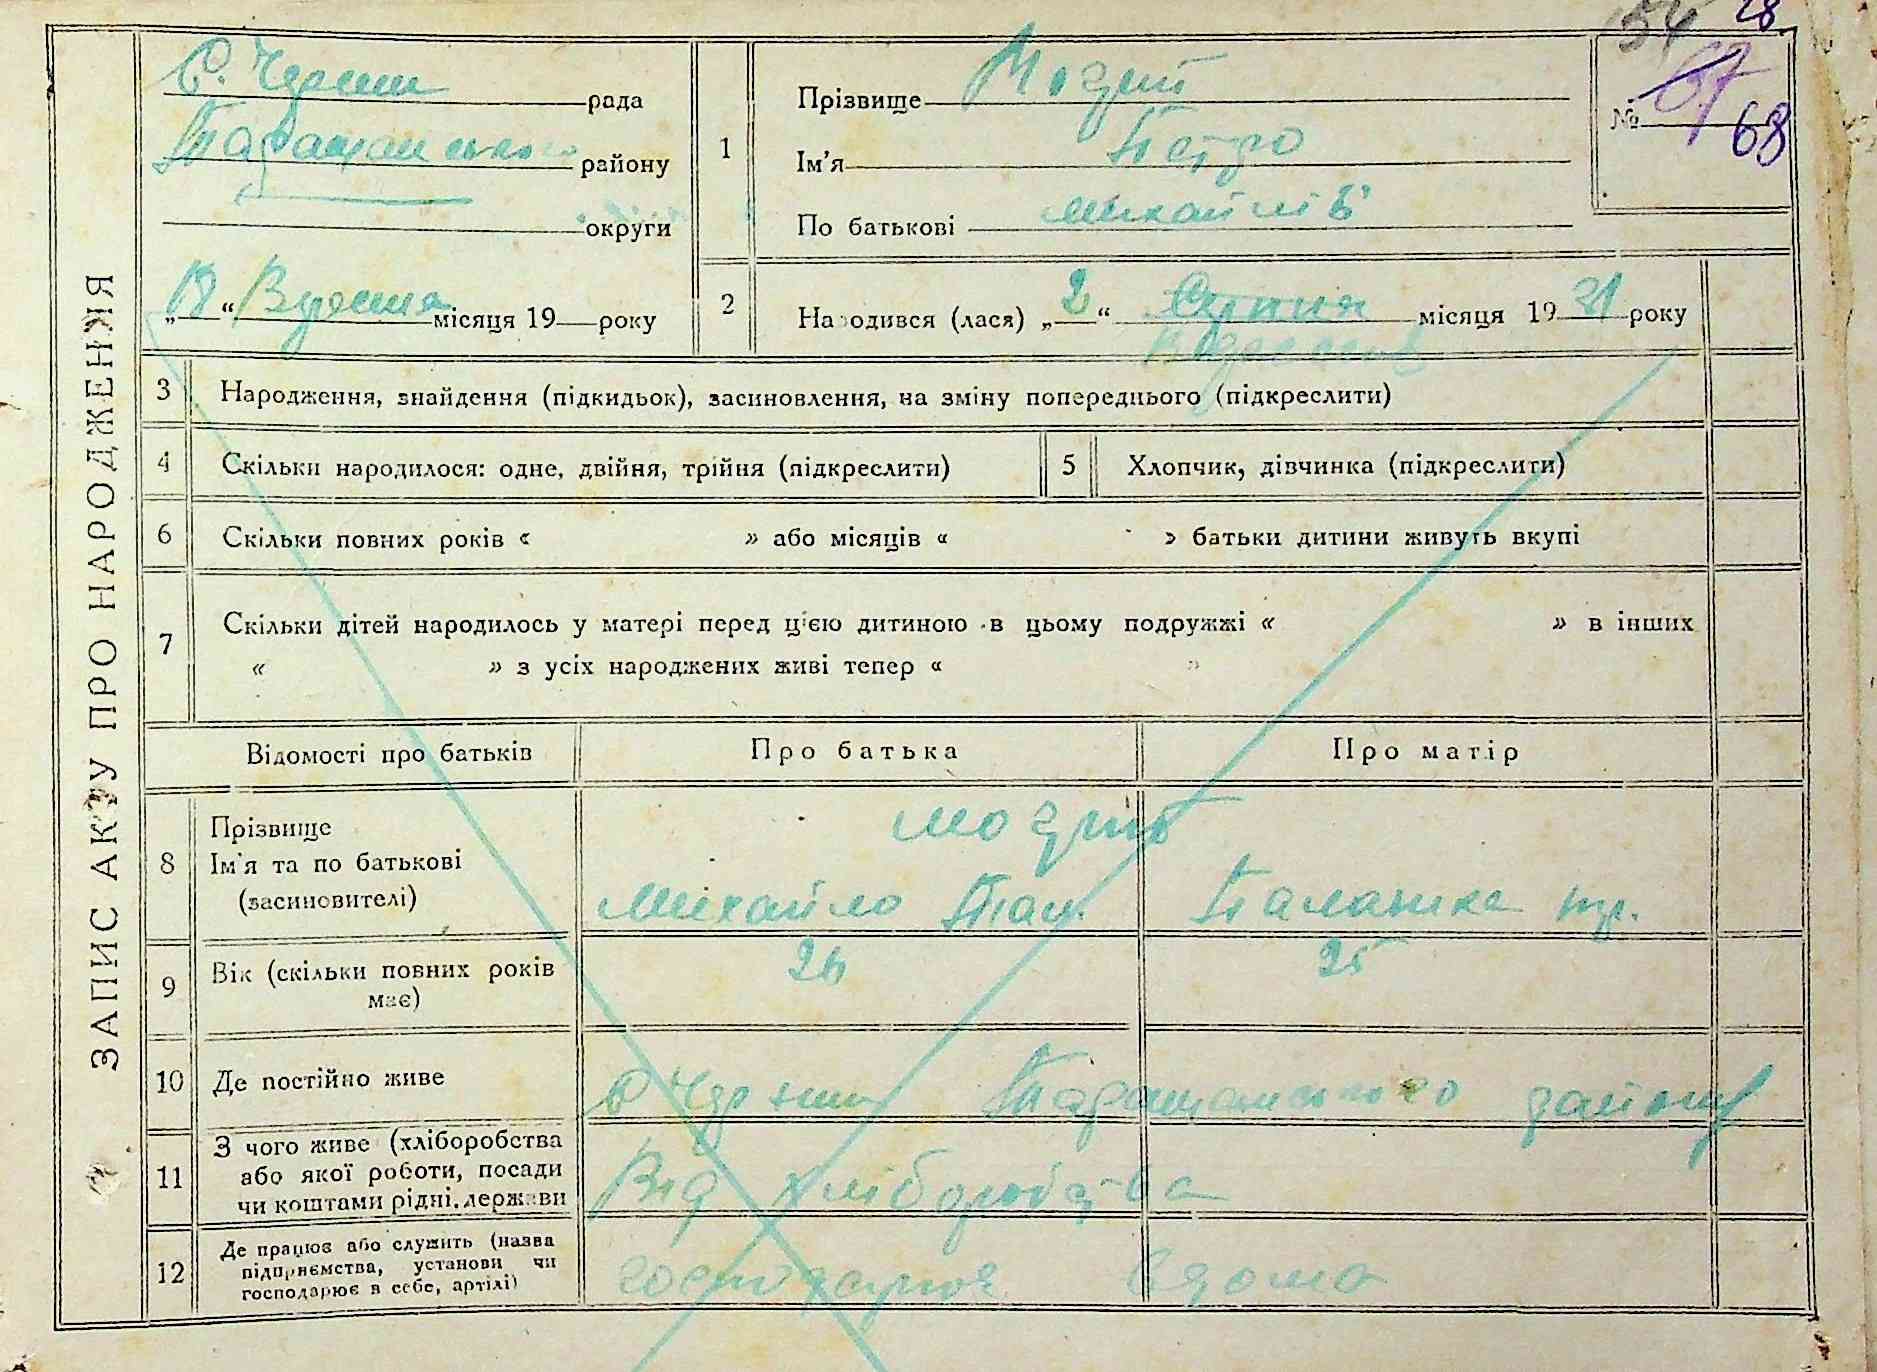 54 28.
С. Чреши рада
Таращанського району
округи
„18“ Вресня місяця 19 року
1
Прізвище
Ім'я Петро
По батькові Михайлів
№ 67 68
2
Народився (лася) „2“ Серпня місяця 1931 року
Вресня
ЗАПИС АКТУ ПРО НАРОДЖЕННЯ
3 Народження, знайдення (підкидьок), засиновлення, на зміну попереднього (підкреслити)
4 Скільки народилося: одне, двійня, трійня (підкреслити) 5 Хлопчик, дівчинка (підкреслити)
6 Скільки повних років « » або місяців « » батьки дитини живуть вкупі
7 Скільки дітей народилось у матері перед цією дитиною в цьому подружжі « » в інших
« » з усіх народжених живі тепер « »
Відомості про батьків Про батька Про матір
8 Прізвище
Ім'я та по батькові
(засиновителі)
Михайло Пан. Палажка
9 Вік (скільки повних років
має)
26 25
10 Де постійно живе
С Таращанського району
11 З чого живе (хліборобства
або якої роботи, посади
чи коштами рідні, держави
Від хліборобства
12 Де працює або служить (назва
підприємства, установи чи
господарює в себе, артілі)
господарює вдома